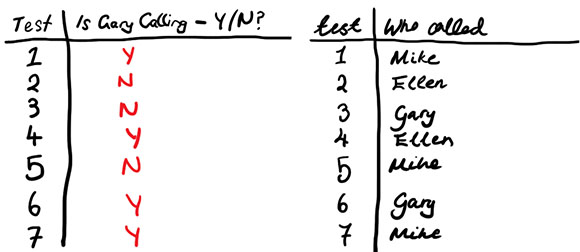 Test Is Gary Calling - Y/N?
1 Y
2 N
3 N
4 Y
5 N
6 Y
7 Y
test Who called
1 Mike
2 Ellen
3 Gary
4 Ellen
5 Mike
6 Gary
7 Mike